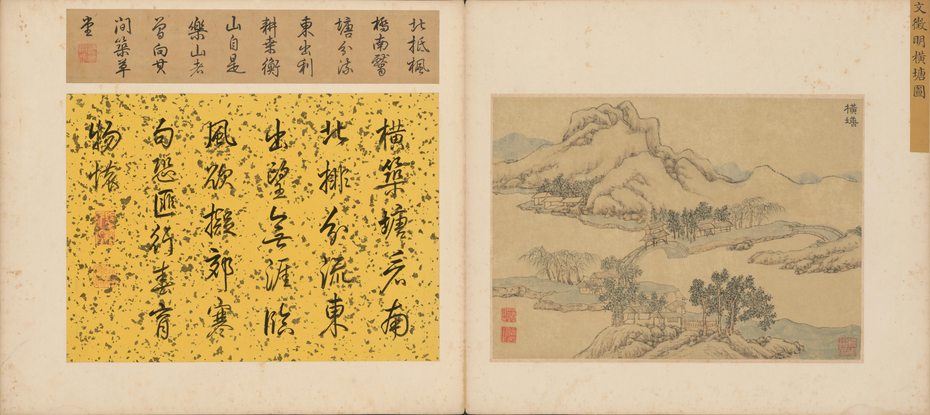 文徵明橫塘圖
橫塘
北抵楓
橋南
塘分流
東出利
耕桑衡
山自是
樂山者
曾向其
間築草
堂
橫築塘南
北排分流東
出望無涯臨
風欲擬郊寒
句恐匪行春育
物懷